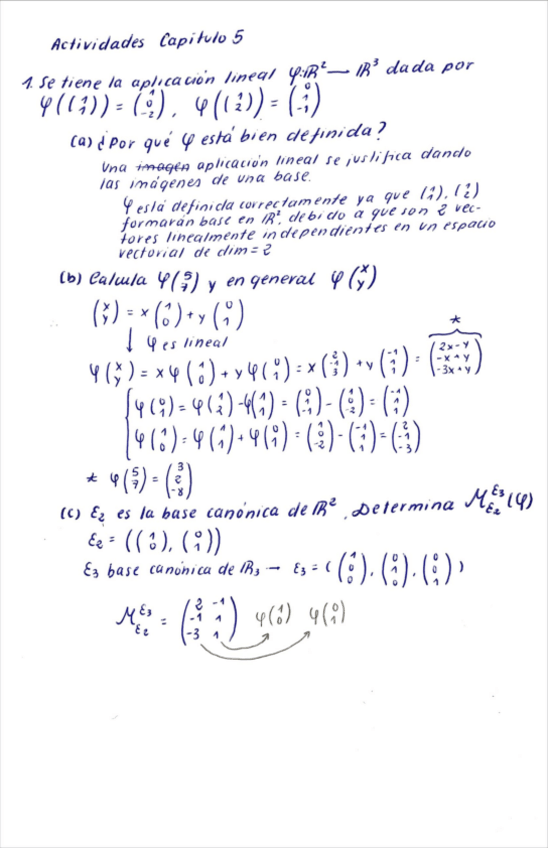 Actividades Capitulo 5
1. Se tiene la aplicación lineal φ:ℝ² — ℝ³ dada por
φ((1 1)) = (1 0 -2), φ((1 2)) = (0 1 -1)
(a) ¿Por qué φ está bien definida?
Una imagen aplicación lineal se justifica dando
las imágenes de una base.
φ está definida correctamente ya que (1 1), (1 2)
formarán base en ℝ², debido a que son 2 vec-
tores linealmente independientes en un espacio
vectorial de dim = 2
(b) Calcula φ(5 7) y en general φ(x y)
(x y) = x (1 0) + y (0 1)
*
↓ φ es lineal
φ(x y) = x φ(1 0) + y φ(0 1) = x (2 -1 -3) + y (-1 1 1) = (2x-y -x+y -3x+y)
φ(0 1) = φ(1 2) - φ(1 1) = (0 1 -1) - (1 0 -2) = (-1 1 1)
φ(1 0) = φ(1 1) + φ(0 1) = (1 0 -2) - (-1 1 1) = (2 -1 -3)
* φ(5 7) = (3 2 -8)
(c) ε2 es la base canónica de ℝ². Determina M^ε3_ε2(φ)
ε2 = ((1 0), (0 1))
ε3 base canónica de ℝ3 → ε3 = ((1 0 0), (0 1 0), (0 0 1))
M^ε3_ε2 = (2 -1 -1 1 -3 1) φ(1 0) φ(0 1)